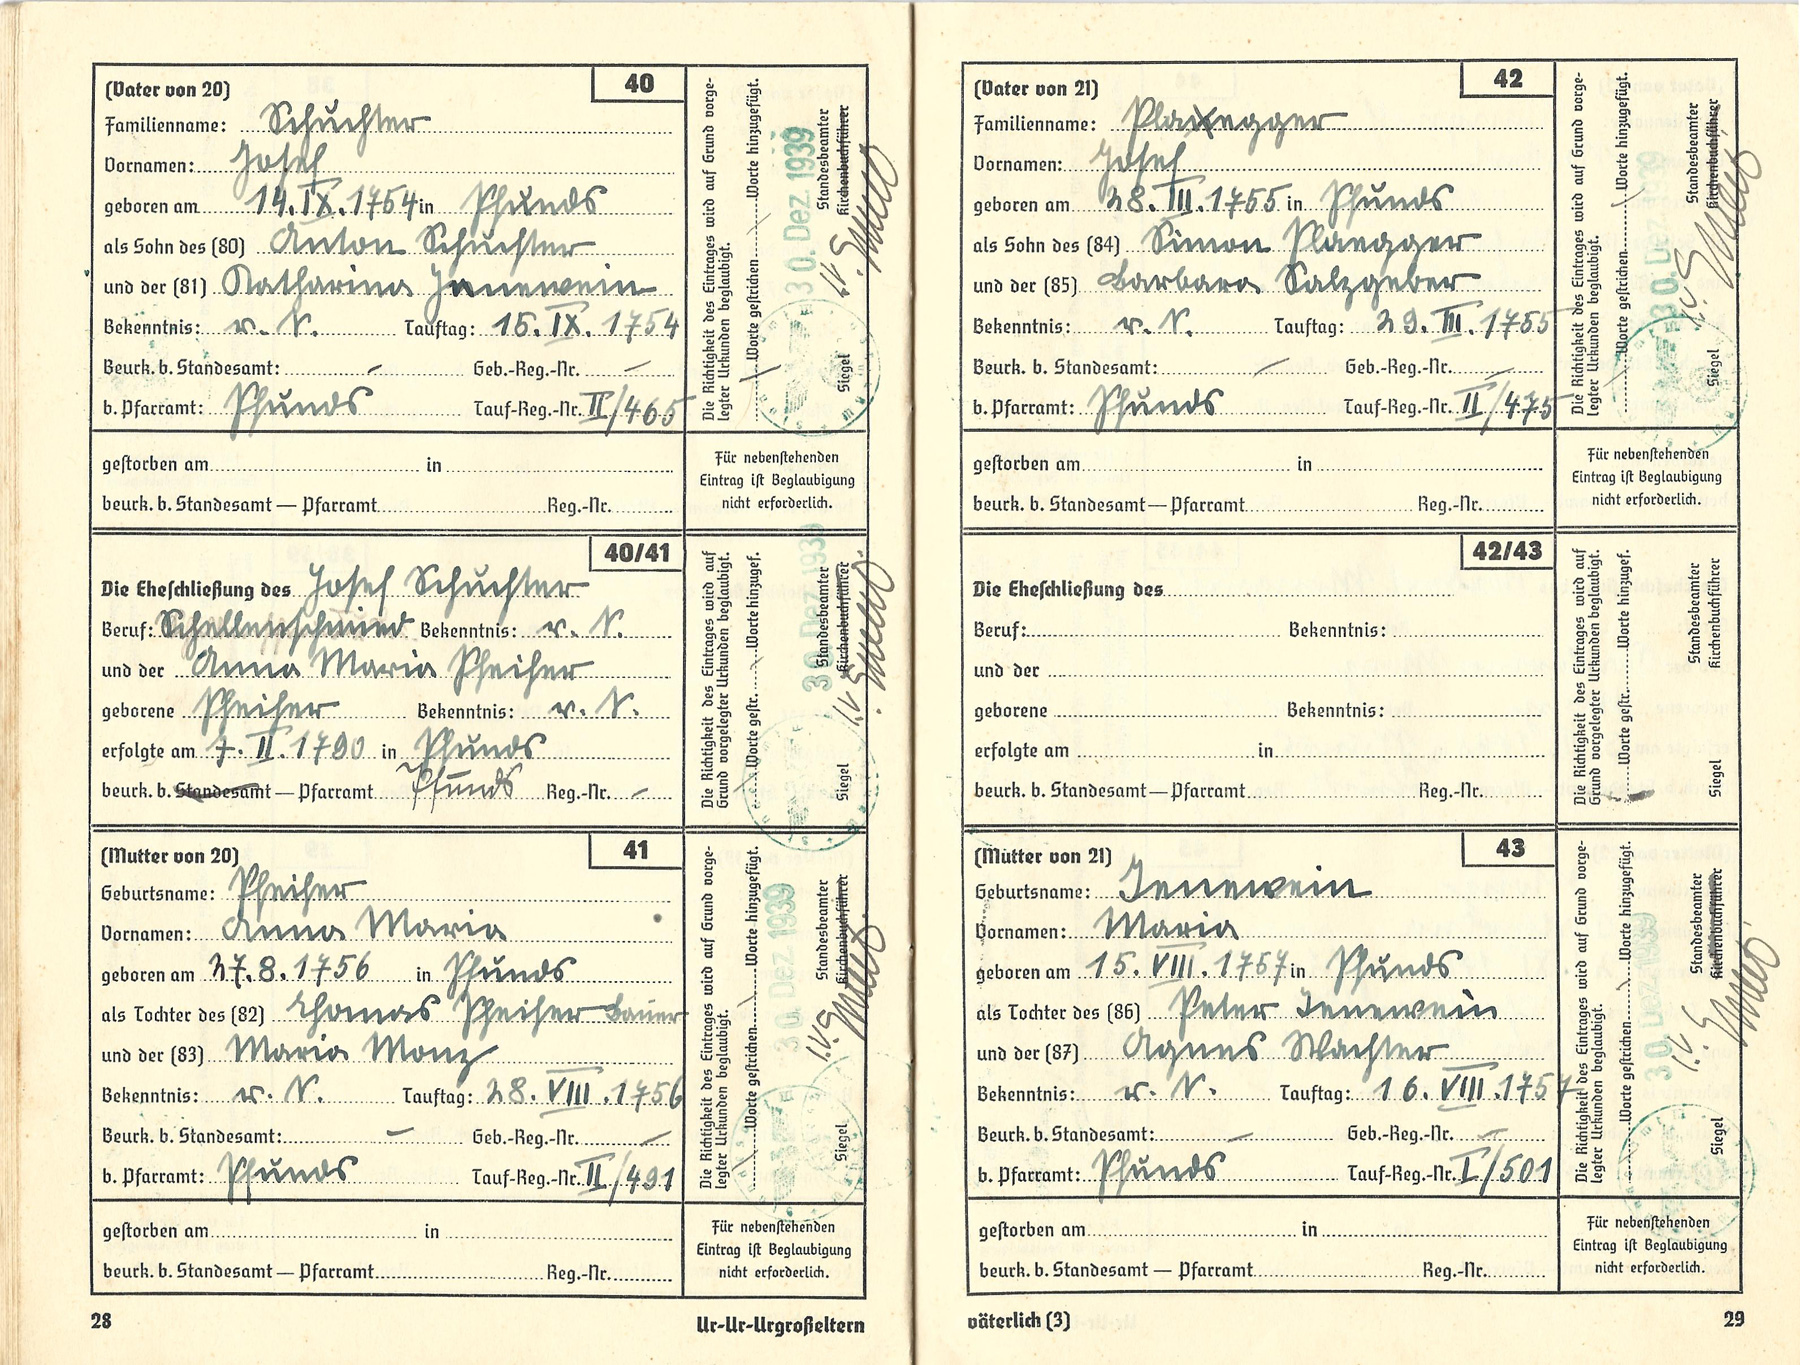 (Vater von 20) 40
Familienname: Schuchter
Vornamen: Josef
geboren am 14.IX.1754 in Pfunds
als Sohn des (80) Anton Schuchter
und der (81) Katharina Jenewein
Bekenntnis: r. K. Tauftag: 15.IX.1754
Beurk. b. Standesamt: – Geb.-Reg.-Nr. –
b. Pfarramt: Pfunds Tauf-Reg.-Nr. II/465
Die Richtigkeit des Eintrages wird auf Grund vorge-
legter Urkunden beglaubigt.
Worte gestrichen Worte hinzugefügt.
30. Dez. 1939
Standesbeamter
Kirchenbuchführer
Siegel
gestorben am in
beurk. b. Standesamt — Pfarramt Reg.-Nr.
Für nebenstehenden
Eintrag ist Beglaubigung
nicht erforderlich.
40/41
Die Eheschließung des Josef Schuchter
Beruf: Schellenschmied Bekenntnis: r. K.
und der Anna Maria Pfeifer
geborene Pfeifer Bekenntnis: r. K.
erfolgte am 7.II.1790 in Pfunds
beurk. b. Standesamt — Pfarramt Pfunds Reg.-Nr. –
Die Richtigkeit des Eintrages wird auf
Grund vorgelegter Urkunden beglaubigt.
Worte gestr. Worte hinzugef.
30. Dez. 1939
Standesbeamter
Kirchenbuchführer
Siegel
(Mutter von 20) 41
Geburtsname: Pfeifer
Vornamen: Anna Maria
geboren am 27.8.1756 in Pfunds
als Tochter des (82) Thomas Pfeifer Bauer
und der (83) Maria Monz
Bekenntnis: r. K. Tauftag: 28.VIII.1756
Beurk. b. Standesamt: – Geb.-Reg.-Nr. –
b. Pfarramt: Pfunds Tauf-Reg.-Nr. II/491
Die Richtigkeit des Eintrages wird auf Grund vorge-
legter Urkunden beglaubigt.
Worte gestrichen Worte hinzugefügt.
30. Dez. 1939
Standesbeamter
Kirchenbuchführer
Siegel
gestorben am in
beurk. b. Standesamt — Pfarramt Reg.-Nr.
Für nebenstehenden
Eintrag ist Beglaubigung
nicht erforderlich.
28 Ur-Ur-Urgroßeltern
(Vater von 21) 42
Familienname: Plangger
Vornamen: Josef
geboren am 28.III.1755 in Pfunds
als Sohn des (84) Simon Plangger
und der (85) Barbara Salzgeber
Bekenntnis: r. K. Tauftag: 29.III.1755
Beurk. b. Standesamt: – Geb.-Reg.-Nr. –
b. Pfarramt: Pfunds Tauf-Reg.-Nr. II/475
Die Richtigkeit des Eintrages wird auf Grund vorge-
legter Urkunden beglaubigt.
Worte gestrichen Worte hinzugefügt.
30. Dez. 1939
Standesbeamter
Kirchenbuchführer
Siegel
gestorben am in
beurk. b. Standesamt — Pfarramt Reg.-Nr.
Für nebenstehenden
Eintrag ist Beglaubigung
nicht erforderlich.
42/43
Die Eheschließung des
Beruf: Bekenntnis:
und der
geborene Bekenntnis:
erfolgte am in
beurk. b. Standesamt — Pfarramt Reg.-Nr.
Die Richtigkeit des Eintrages wird auf
Grund vorgelegter Urkunden beglaubigt.
Worte gestr. Worte hinzugef.
Standesbeamter
Kirchenbuchführer
Siegel
(Mutter von 21) 43
Geburtsname: Jenewein
Vornamen: Maria
geboren am 15.VIII.1757 in Pfunds
als Tochter des (86) Peter Jenewein
und der (87) Agnes Wachter
Bekenntnis: r. K. Tauftag: 16.VIII.1757
Beurk. b. Standesamt: – Geb.-Reg.-Nr. –
b. Pfarramt: Pfunds Tauf-Reg.-Nr. I/501
Die Richtigkeit des Eintrages wird auf Grund vorge-
legter Urkunden beglaubigt.
Worte gestrichen Worte hinzugefügt.
30. Dez. 1939
Standesbeamter
Kirchenbuchführer
Siegel
gestorben am in
beurk. b. Standesamt — Pfarramt Reg.-Nr.
Für nebenstehenden
Eintrag ist Beglaubigung
nicht erforderlich.
väterlich (3) 29